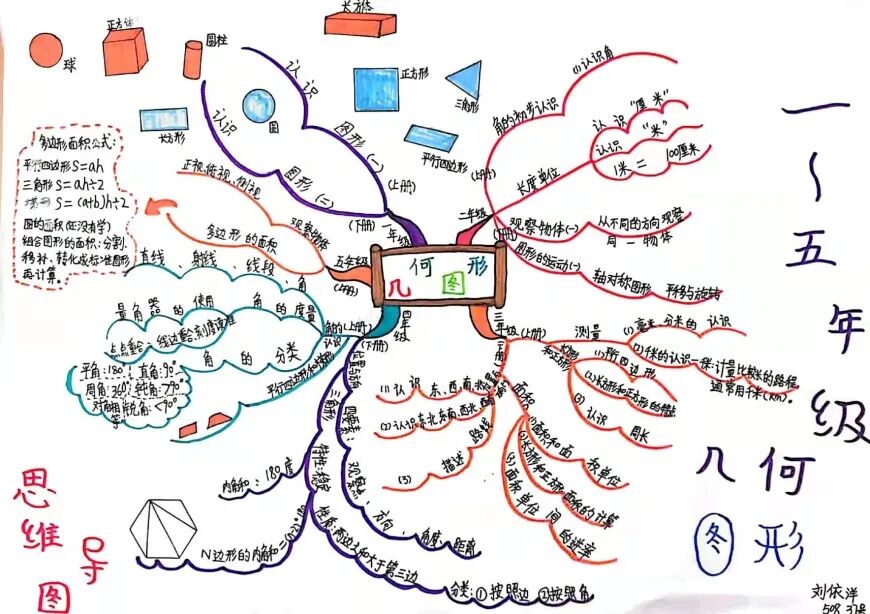 球
正方体
圆柱
长方体
长方形
圆
正方形
三角形
平行四边形
一～五年级
几何图形
思维导图
几何图形
一年级
(上册)
认识图形(一)
(下册)
认识图形(二)
二年级
(上册)
角的初步认识
(1)认识角
长度单位
认识"厘米"
认识"米"
1米=100厘米
(下册)
观察物体(一)
从不同的方向观察
同一物体
图形的运动(一)
轴对称图形
平移与旋转
三年级
(上册)
测量
(1)毫米、分米的认识
(2)千米的认识
计量比较长的路程
通常用千米(km)。
长方形和正方形
(1)四边形
(2)长方形和正方形的特点
(3)认识周长
(下册)
(1)认识东、西、南、北
(2)认识东北、东南、西北
(3)描述路线
面积
(1)面积和面积单位
(2)长方形和正方形面积的计算
(3)面积单位间的进率
四年级
(上册)
角的认识
直线、射线、线段、角
量角器的使用
角的度量
点点重合、线边重合、刻度读准
角的分类
平角:180°
直角:90°
周角:360°
钝角:>90°
对顶角相等
锐角:<90°
平行四边形和梯形
(下册)
位置与方向
四要素:观察点、方向、角度、距离
三角形
内角和:180度
特性:稳定
性质:两边之和大于第三边
N边形的内角和=(n-2)×180
分类:①按照边 ②按照角
五年级
(上册)
观察物体
正视、俯视、侧视
多边形的面积
多边形面积公式:
平行四边形S=ah
三角形S=ah÷2
梯形S=(a+b)h÷2
圆的面积(还没有学)
组合图形的面积:分割、
移补、转化成标准图形
再计算。
刘依洋